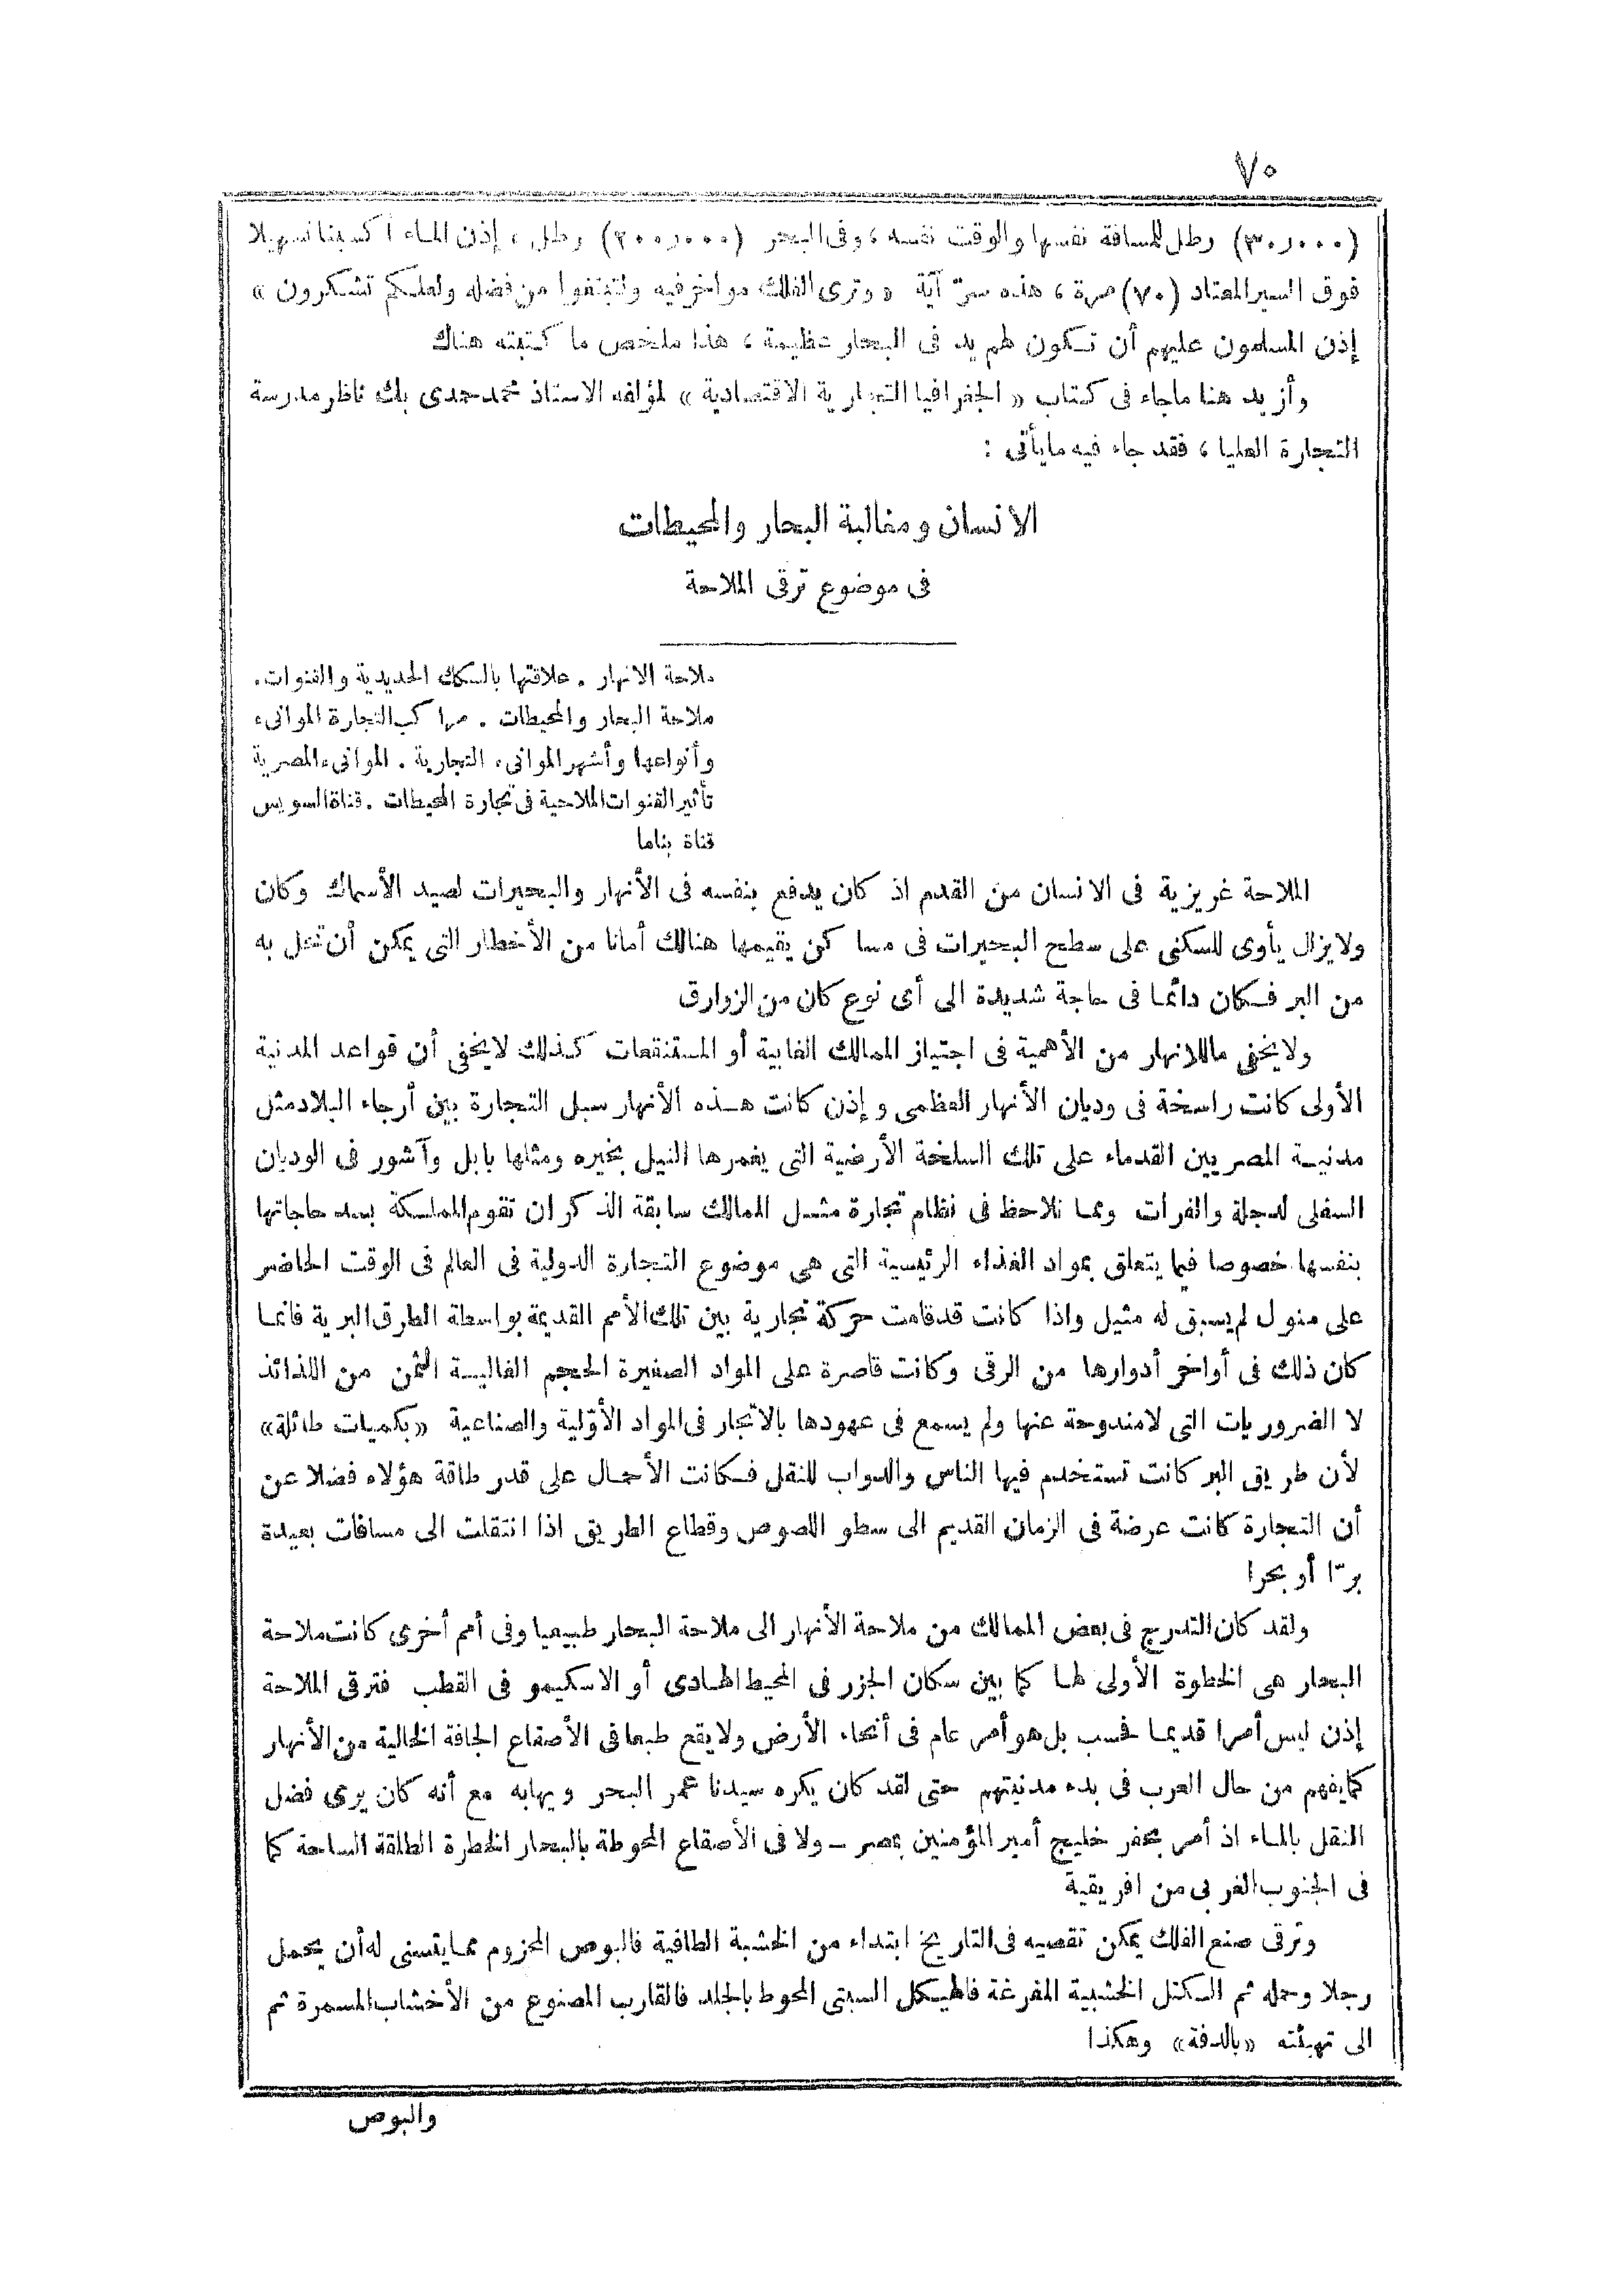 ٧٠
(٣٠٫٠٠٠) رطل للمسافة نفسها والوقت نفسه ، وفى البحر (٢٠٠٫٠٠٠) رطل ، إذن الماء أكسبنا تسهيلا
فوق السير المعتاد (٧٠) مرة ، هذه سرّ آية « وترى الفلك مواخر فيه ولتبتغوا من فضله ولعلكم تشكرون »
إذن المسلمون عليهم أن تكون لهم يد فى البحار عظيمة ، هذا ملخص ما كتبته هناك
وأزيد هنا ماجاء فى كتاب « الجغرافيا التجارية الاقتصادية » لمؤلفه الاستاذ محمد حمدى بك ناظر مدرسة
التجارة العليا ، فقد جاء فيه مايأتى :
الانسان ومغالبة البحار والمحيطات
فى موضوع ترقى الملاحة
ملاحة الانهار . علاقتها بالسكك الحديدية والقنوات .
ملاحة البحار والمحيطات . مراكب التجارة الموانىء
وأنواعها وأشهر الموانىء التجارية . الموانىء المصرية
تأثير القنوات الملاحية فى تجارة المحيطات . قناة السويس
قناة بناما
الملاحة غريزية فى الانسان من القدم اذ كان يدفع بنفسه فى الأنهار والبحيرات لصيد الأسماك وكان
ولايزال يأوى للسكنى على سطح البحيرات فى مساكن يقيمها هنالك أمانا من الأخطار التى يمكن أن تحل به
من البر فكان دائما فى حاجة شديدة الى أى نوع كان من الزوارق
ولايخفى ماللانهار من الأهمية فى اجتياز الممالك الغابية أو المستنقعات كذلك لايخفى أن قواعد المدنية
الأولى كانت راسخة فى وديان الأنهار العظمى وإذن كانت هذه الأنهار سبل التجارة بين أرجاء البلاد مثل
مدنية المصريين القدماء على تلك السلخة الأرضية التى يغمرها النيل بخيره ومثلها بابل وآشور فى الوديان
السفلى لدجلة والفرات ومما نلاحظ فى نظام تجارة مثل الممالك سابقة الذكر ان تقوم المملكة بسد حاجاتها
بنفسها خصوصا فيما يتعلق بمواد الغذاء الرئيسية التى هى موضوع التجارة الدولية فى العالم فى الوقت الحاضر
على منول لم يسبق له مثيل واذا كانت قد قامت حركة تجارية بين تلك الأمم القديمة بواسطة الطرق البرية فانما
كان ذلك فى أواخر أدوارها من الرقى وكانت قاصرة على المواد الصغيرة الحجم الغالية الثمن من اللذائذ
لا الضروريات التى لامندوحة عنها ولم يسمع فى عهودها بالاتجار فى المواد الأوّلية والصناعية «بكميات طائلة»
لأن طريق البر كانت تستخدم فيها الناس والدواب للنقل فكانت الأحمال على قدر طاقة هؤلاء فضلا عن
أن التجارة كانت عرضة فى الزمان القديم الى سطو اللصوص وقطاع الطريق اذا انتقلت الى مسافات بعيدة
برّا أو بحرا
ولقد كان التدرج فى بعض الممالك من ملاحة الأنهار الى ملاحة البحار طبيعيا وفى أمم أخرى كانت ملاحة
البحار هى الخطوة الأولى لها كما بين سكان الجزر فى المحيط الهادى أو الاسكيمو فى القطب فترقى الملاحة
إذن ليس أمرا قديما فحسب بل هو أمر عام فى أنحاء الأرض ولايقع طبعا فى الأصقاع الجافة الخالية من الأنهار
كمايفهم من حال العرب فى بدء مدنيتهم حتى لقد كان يكره سيدنا عمر البحر ويهابه مع أنه كان يرى فضل
النقل بالماء اذ أمر بحفر خليج أمير المؤمنين بمصر ــ ولا فى الأصقاع المحوطة بالبحار الخطرة الطلقة الساحة كما
فى الجنوب الغربى من افريقية
وترقى صنع الفلك يمكن تقصيه فى التاريخ ابتداء من الخشبة الطافية فالبوص المحزوم ممايتسنى له أن يحمل
رجلا وحمله ثم الكتل الخشبية المفرغة فالهيكل السبتى المحوط بالجلد فالقارب المصنوع من الأخشاب المسمرة ثم
الى تهيئته «بالدفة» وهكذا
والبوص